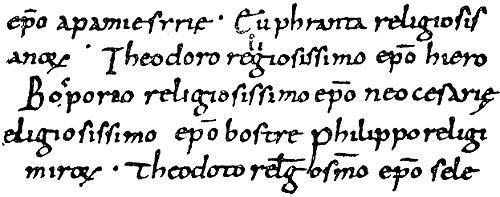 ep̄o apamiesrrie · Euphranta religiosis
anoꝝ · Theodoro religiosissimo ep̄o hiero
Bosporio religiosissimo ep̄o neocesarię
eligiosissimo ep̄o bostre philippo religi
miroꝝ · Theodoto relḡosm̄o ep̄o sele